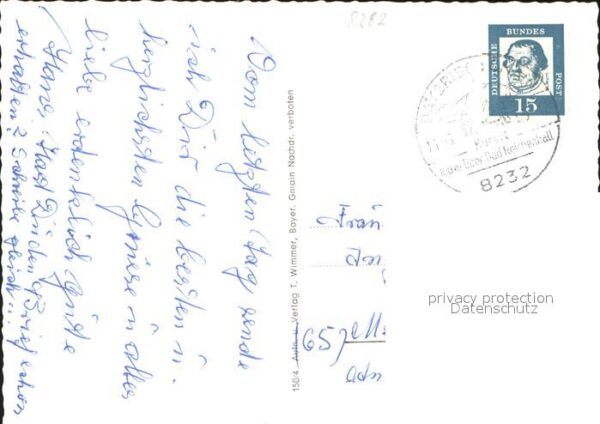 Vom letzten Tag sende
ich Dir die besten u.
herzlichsten Grüsse u. alles
liebe erdenklich Gute
Hans. Hast Du den Brief schon
erhalten? Schreibe gleich!
150/4 Aufn. u. Verlag T. Wimmer, Bayer. Gmain Nachdr. verboten
8282
DEUTSCHE BUNDES POST
15
Bad Reichenhall
8232
Fräu
657
privacy protection
Datenschutz